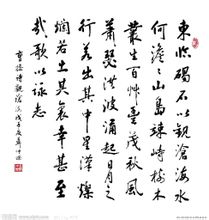 東臨碣石以觀滄海水
何澹澹山島竦峙樹木
叢生百艸豐茂秋風
蕭瑟洪波涌起日月之
行若出其中星漢燦
爛若出其裏幸甚至
哉歌以詠志
曹操詩觀滄海戊子夏